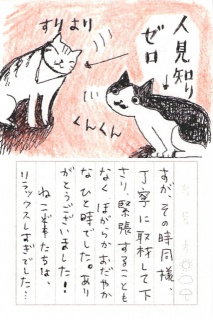 人見知り
ゼロ
すりより
くんくん
すが、その時同様、
丁寧に取材して下
さり、緊張することも
なくほがらかおだやか
なひと時でした。あり
がとうございました！
ねこ達たちは、
リラックスしすぎでした…